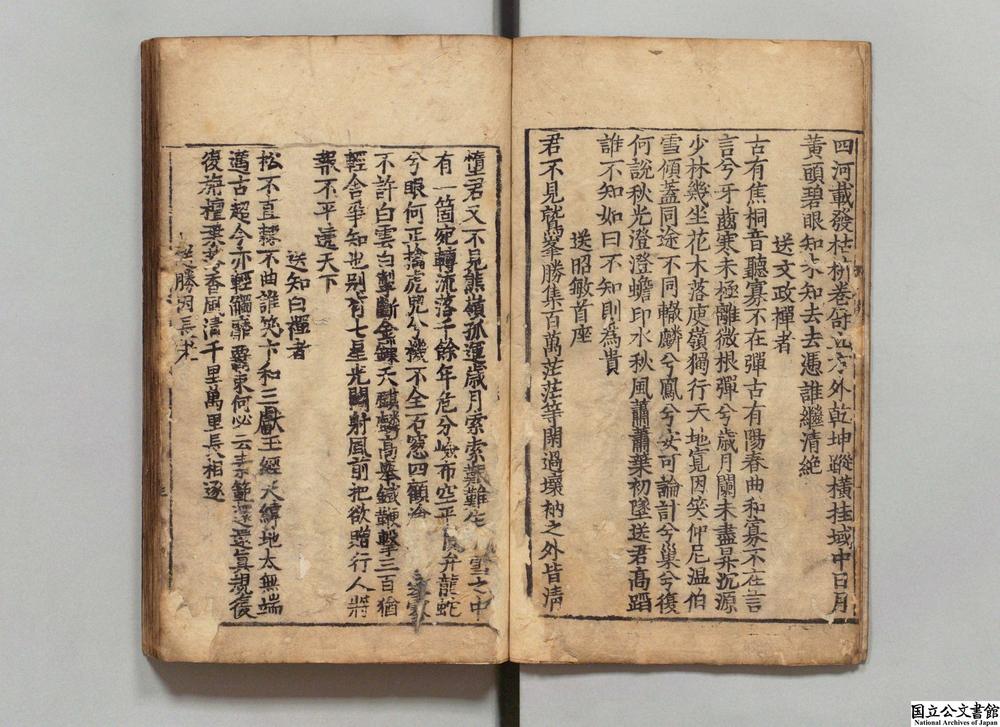 四河載發枯卷舒方外乾坤蹤橫挂域中日月
黃頭碧眼知不知去去憑誰繼清絶
送文政禪者
古有焦桐音聽寡不在彈古有陽春曲和寡不在言
言兮牙齒寒未極離微根彈兮歳月闌未盡昇沉源
少林幾坐花木落庾嶺獨行天地寛因笑仲尼温伯
雪傾蓋同途不同轍麟兮鳳兮安可論計兮巢兮復
何說秋光澄澄蟾印水秋風蕭蕭葉初墜送君高蹈
誰不知如曰不知則為貴
送昭敏首座
君不見鷲峯勝集百萬茫茫等閑過壞衲之外皆清
憧君又不見熊嶺孤運歳月索索難難生雪之中
有一箇宛轉流落千餘年危分嶮布空平弁龍蛇
兮眼何正擒虎兕兮機不全石窓四顧滄
不許白雲白掣斷金鏁天麒麟高舉鐵鞭擊三百猶
輕舍爭知也别有七星光鬭射風前把欲贈行人將
報不平透天下
送知白禪者
松不直棘不曲誰笑卞和三獻玉經天緯地太無端
邁古超今亦輕觸靡東何必云範還還真規復
復旃檀葉葉香風清千里萬里長相逐
勝因長老
國立公文書館
National Archives of Japan